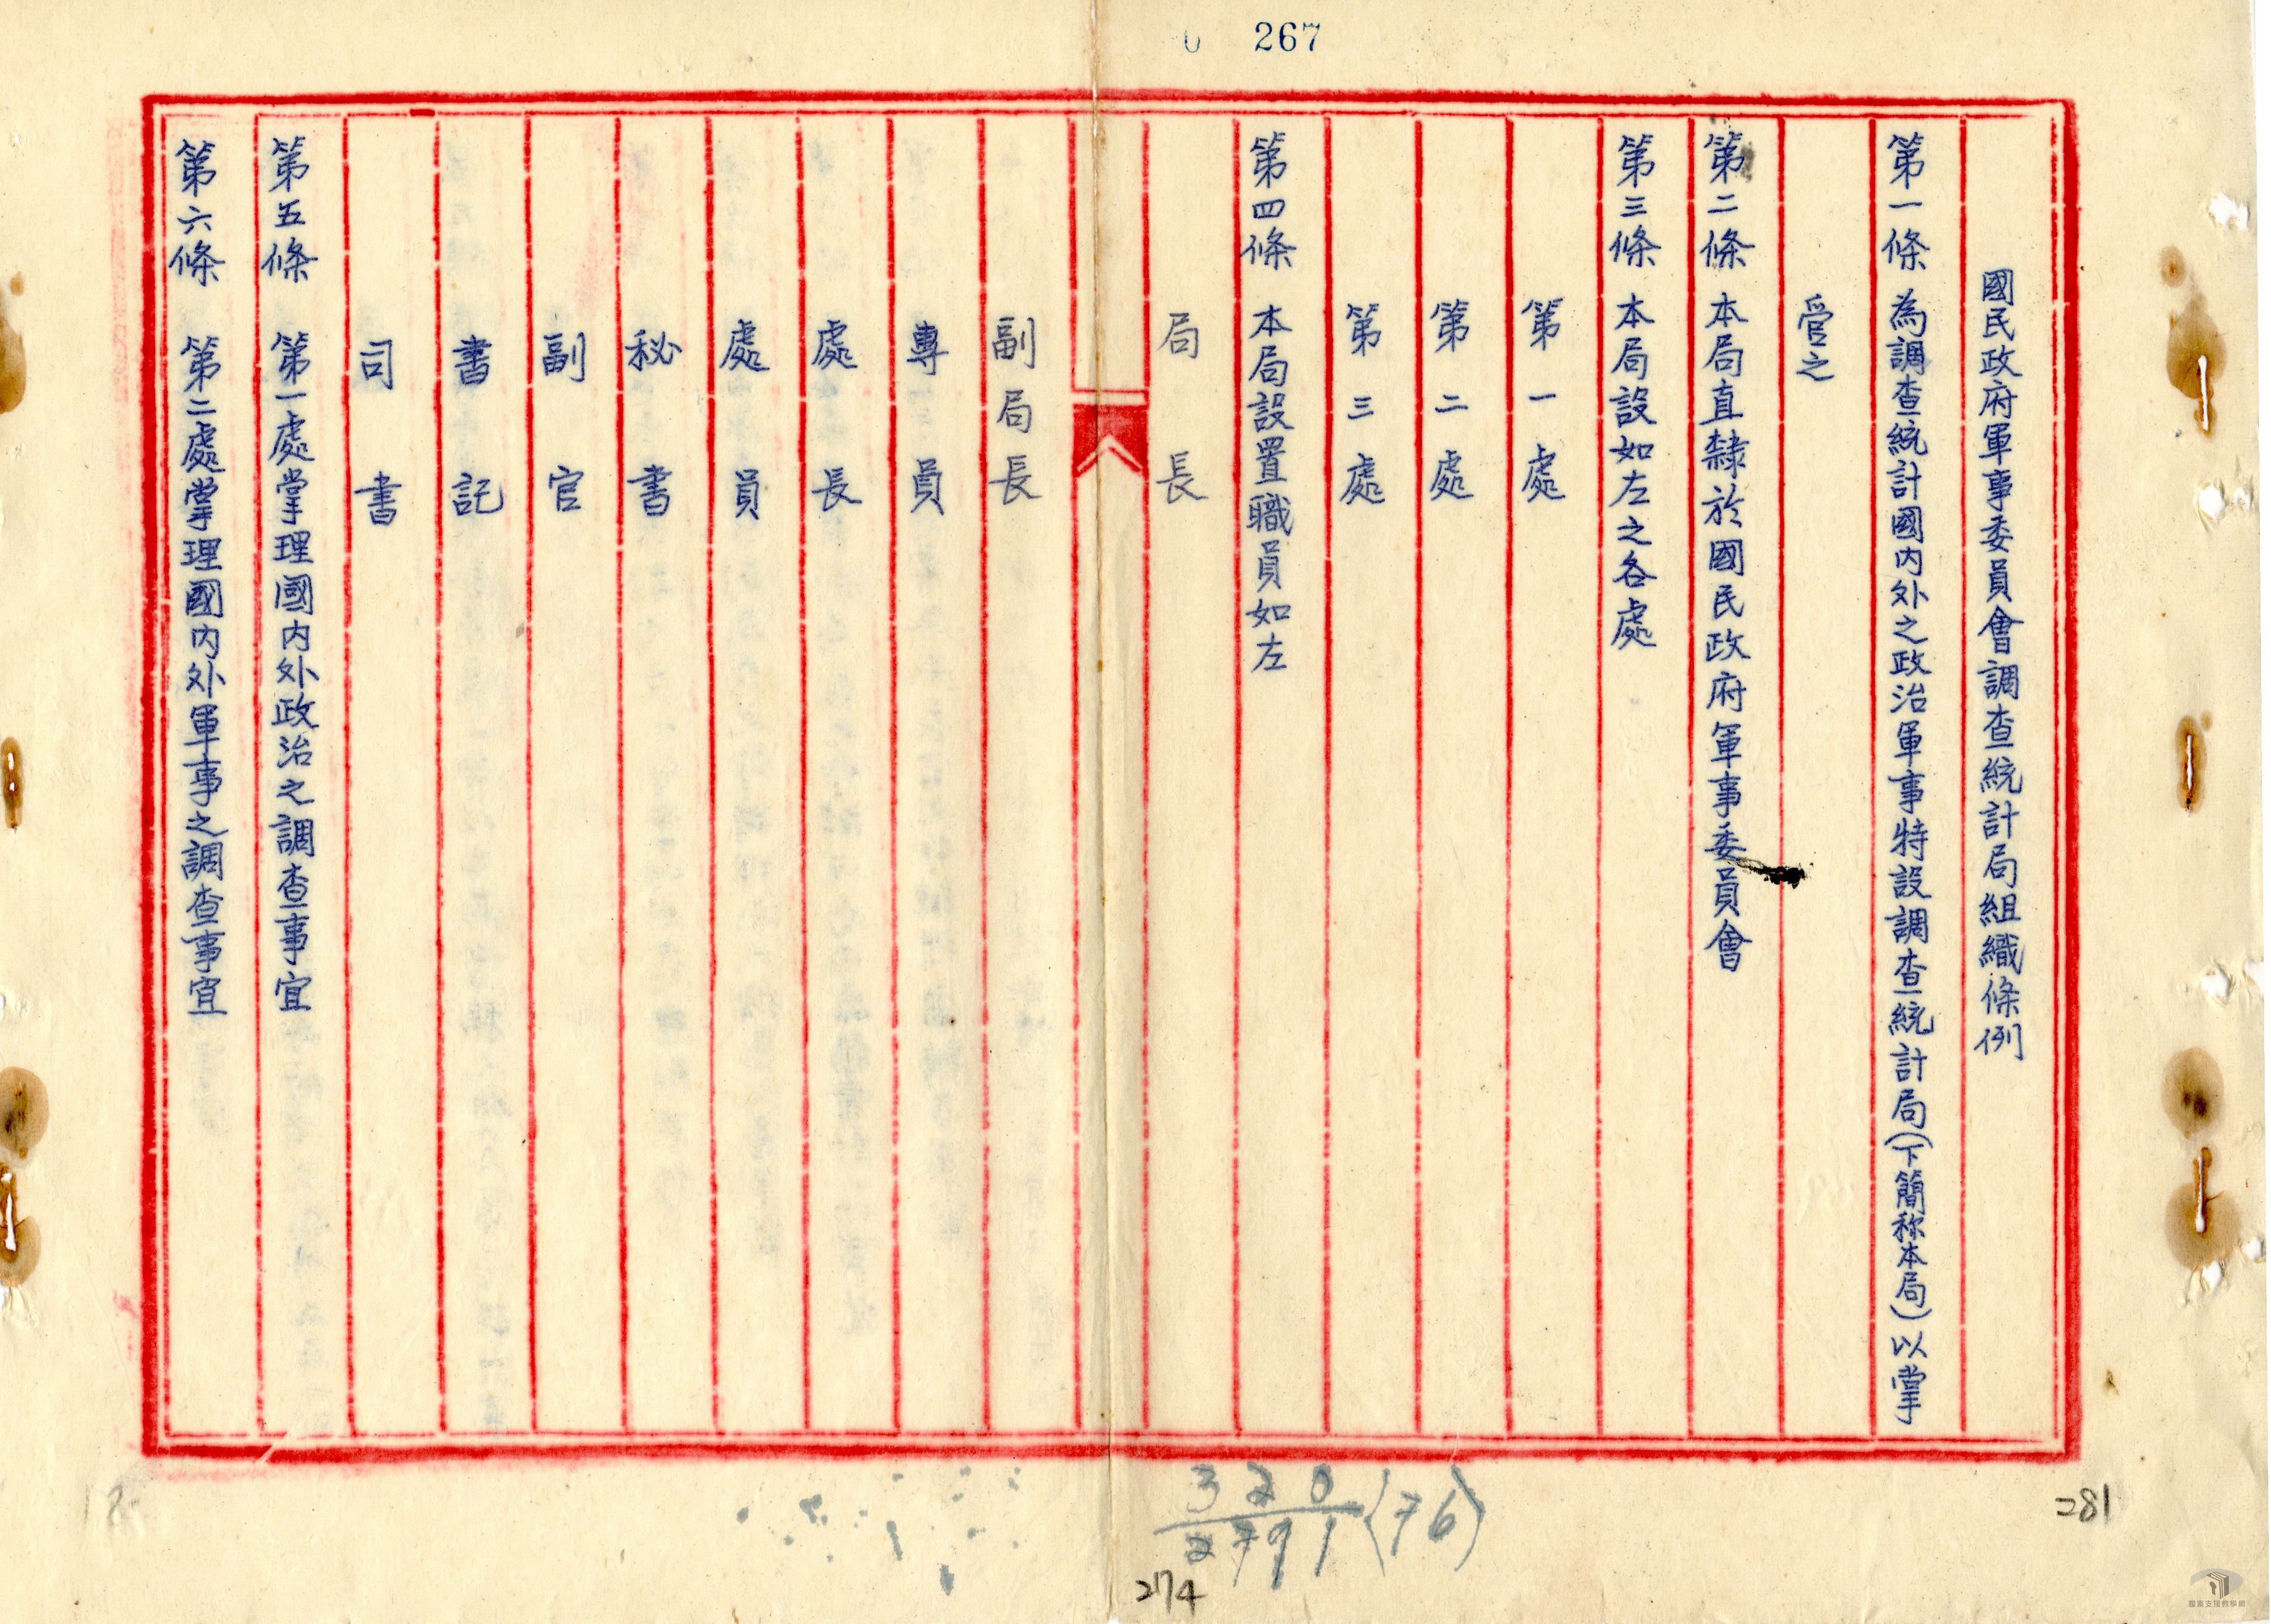 267
國民政府軍事委員會調查統計局組織條例
第一條 為調查統計國內外之政治軍事特設調查統計局(下簡称本局)以掌
管之
第二條 本局直隸於國民政府軍事委員會
第三條 本局設如左之各處
第一處
第二處
第三處
第四條 本局設置職員如左
局長
副局長
專員
處長
處員
秘書
副官
書記
司書
第五條 第一處掌理國內外政治之調查事宜
第六條 第二處掌理國內外軍事之調查事宜
320
2791(76)
274
281
檔案支援教學網